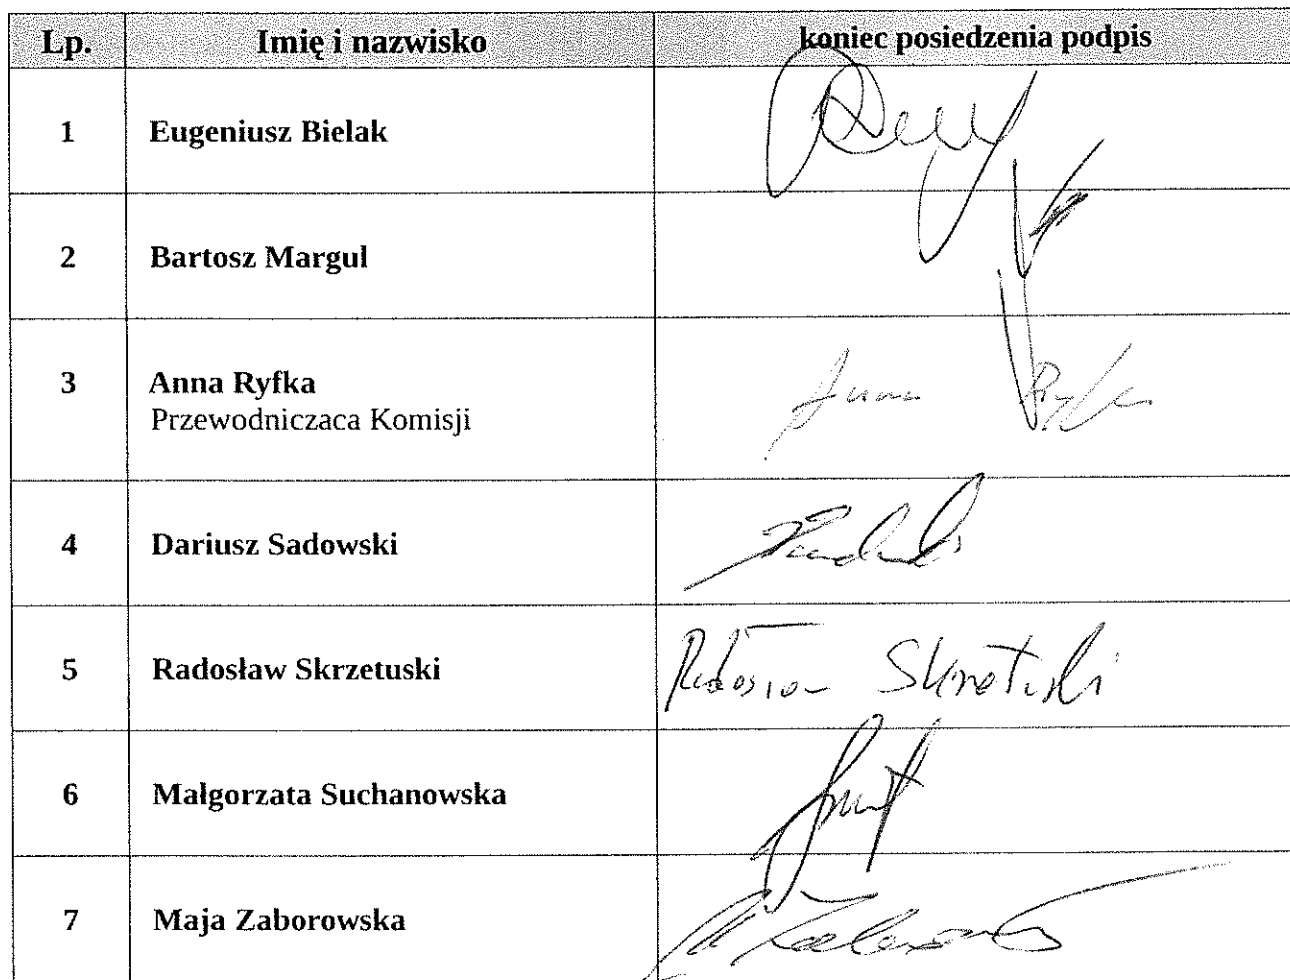 Lp. Imię i nazwisko koniec posiedzenia podpis
1 Eugeniusz Bielak
2 Bartosz Margul
3 Anna Ryfka Anna Ryfka
Przewodniczaca Komisji
4 Dariusz Sadowski
5 Radosław Skrzetuski Radosław Skrzetuski
6 Małgorzata Suchanowska
7 Maja Zaborowska